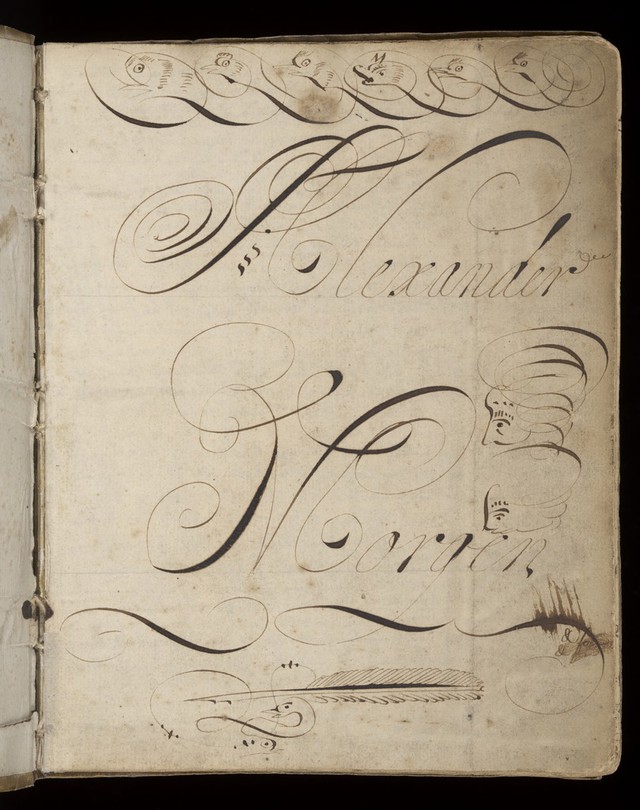 Alexander
Morgen
&
&